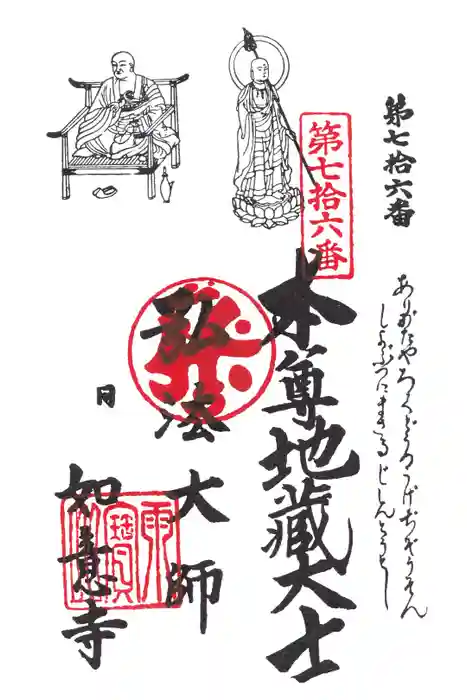 第七拾六番
ありがたやろくどうのうげぢぞうそん
しよぶつにまさるじしんとうとし
第七拾六番
本尊地蔵大士
弘法大師
日
如意寺